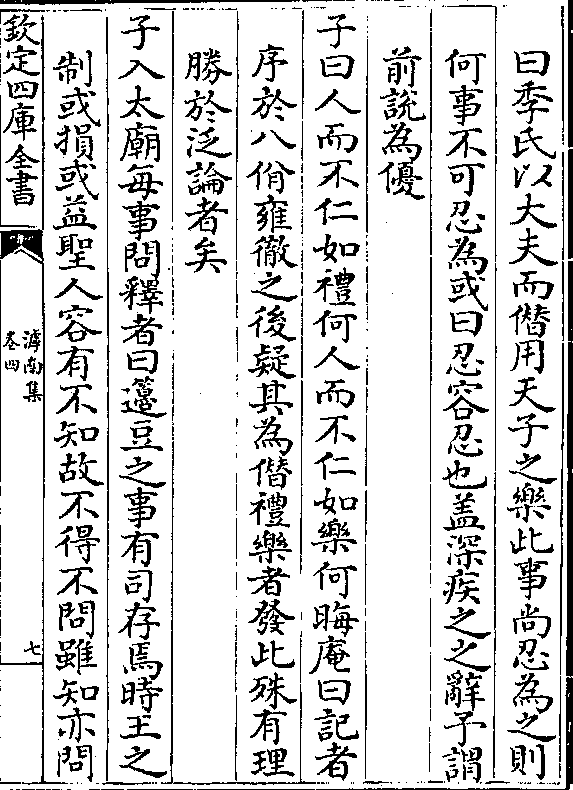 曰季氏以大夫而僭用天子之樂此事尚忍為之則
何事不可忍為或曰忍容忍也盖深疾之之辭予謂
前說為優
子曰人而不仁如禮何人而不仁如樂何晦庵曰記者
序於八佾雍徹之後疑其為僭禮樂者發此殊有理
勝於泛論者矣
子入太廟每事問釋者曰籩豆之事有司存焉時王之
制或損或益聖人容有不知故不得不問雖知亦問
欽定四庫全書
滹南集
卷四
七